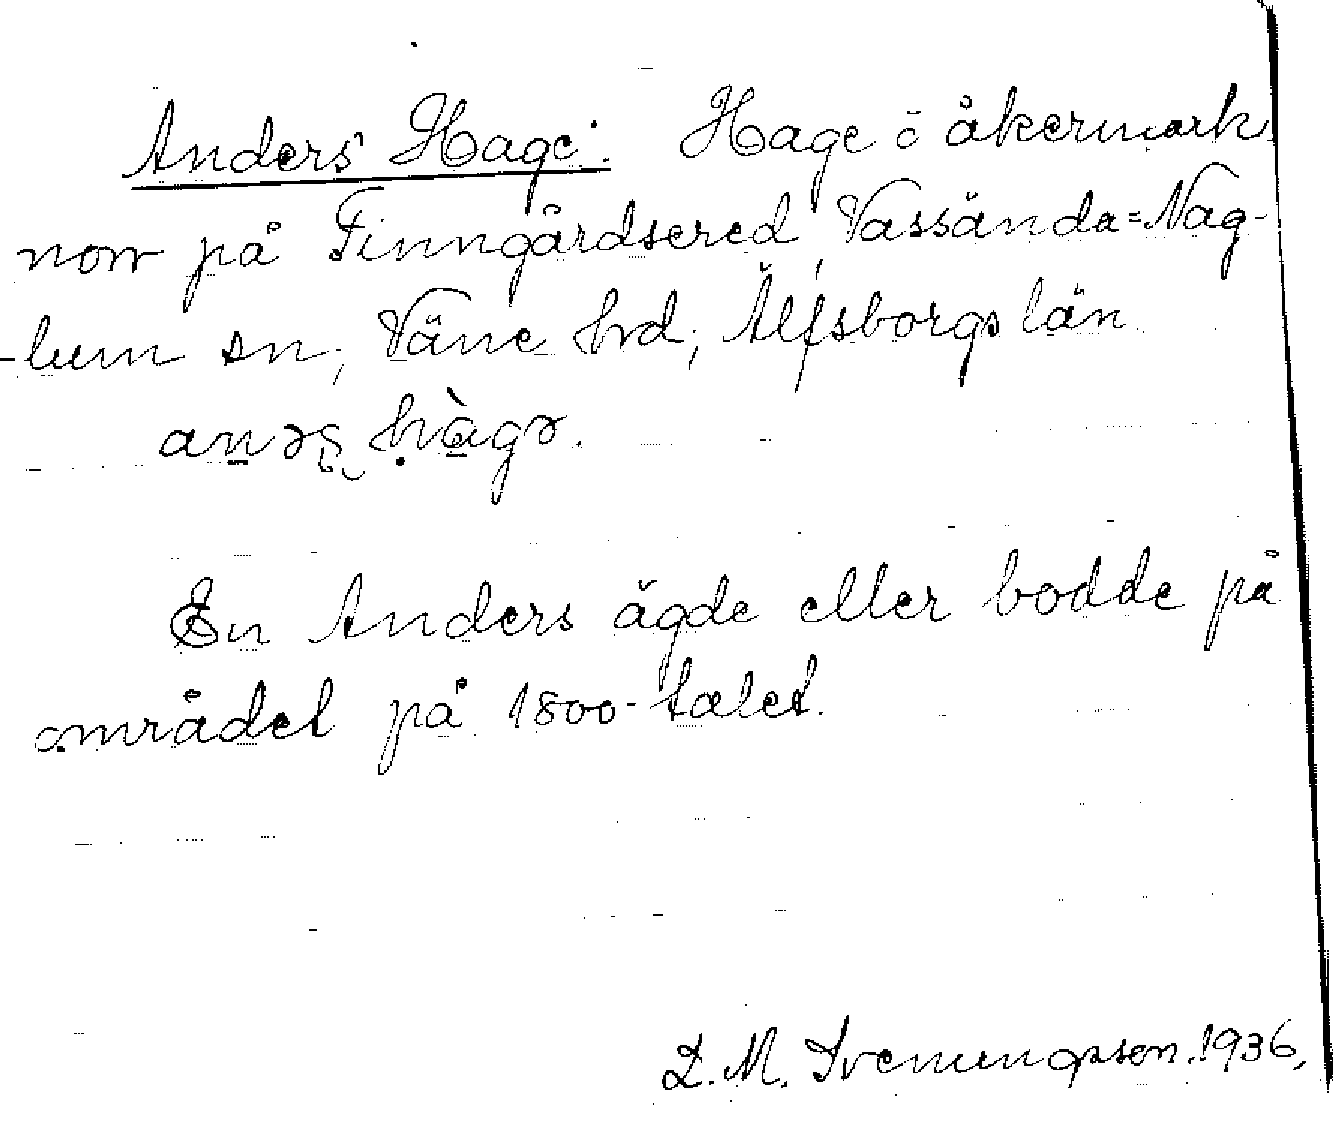 Anders' Hage. Hage i åkermark
norr på Finngårdsered, Vassända=Nag-
-lum sn, Väne hd, Älfsborgs län
En Anders ägde eller bodde på
området på 1800-talet.
L. M. Svenungsson. 1936.